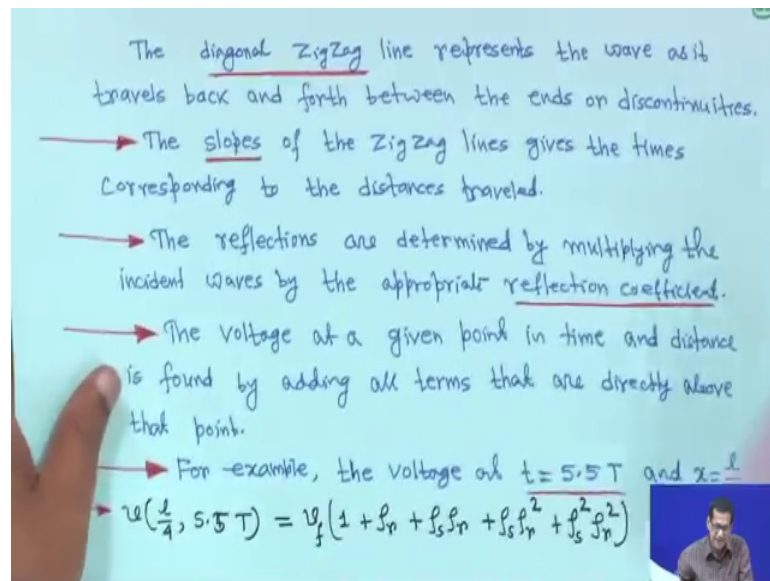 The diagonal ZigZag line represents the wave as it
travels back and forth between the ends or discontinuities.
→ The slopes of the Zigzag lines gives the times
Corresponding to the distances traveled.
→ The reflections are determined by multiplying the
incident waves by the appropriate reflection coefficient.
→ The voltage at a given point in time and distance
is found by adding all terms that are directly above
that point.
→ For example, the voltage at t = 5.5T and x = l
→ v(l/4, 5.5T) = v_f(1 + ρ_r + ρ_s ρ_r + ρ_s ρ_r² + ρ_s² ρ_r²)